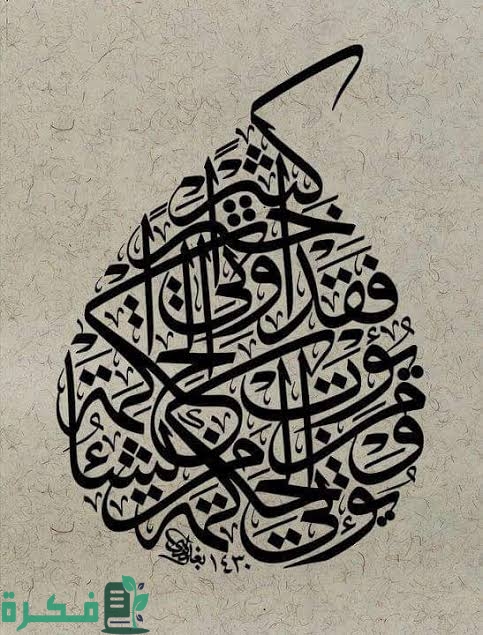 يُؤْتِي الْحِكْمَةَ مَنْ يَشَاءُ
وَمَنْ يُؤْتَ الْحِكْمَةَ
فَقَدْ أُوتِيَ خَيْرًا
كَثِيرًا
١٤٣٠
فكرة